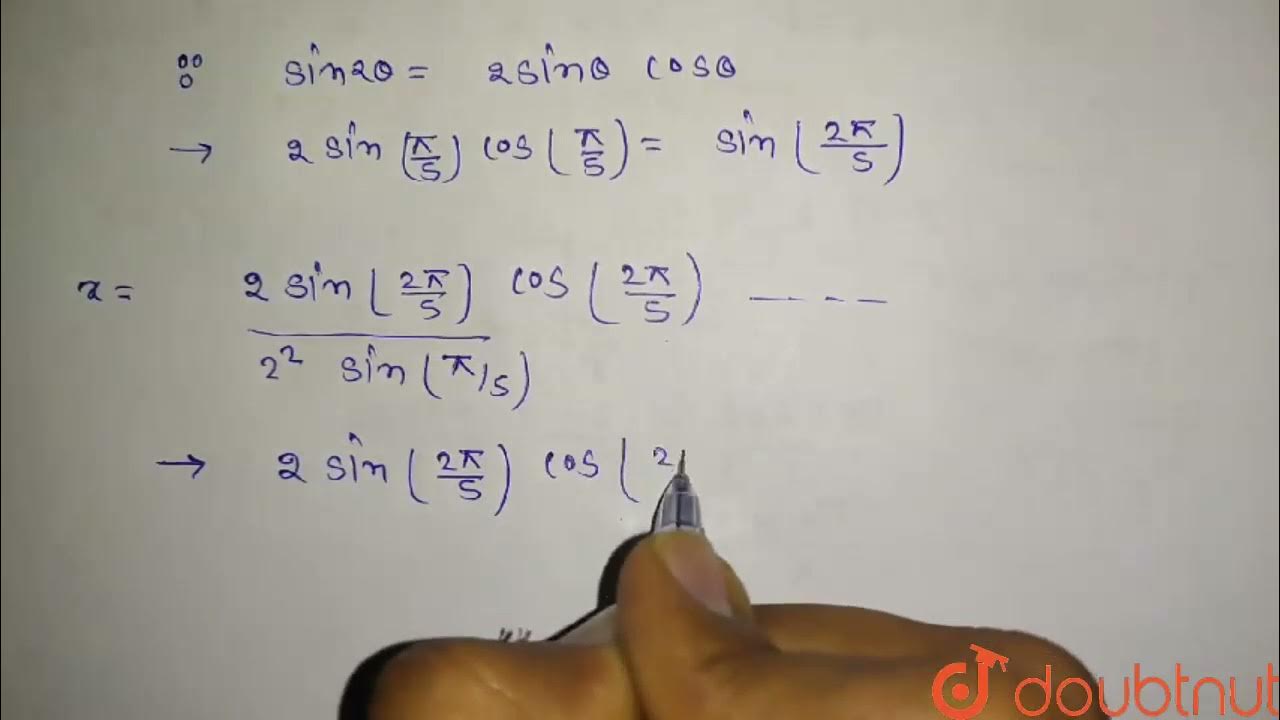 ∵ sin2θ = 2sinθ cosθ
→ 2 sin (π/5) cos (π/5) = sin (2π/5)
x = 2 sin (2π/5) cos (2π/5) ----
2² sin (π/5)
→ 2 sin (2π/5) cos ( 2
doubtnut